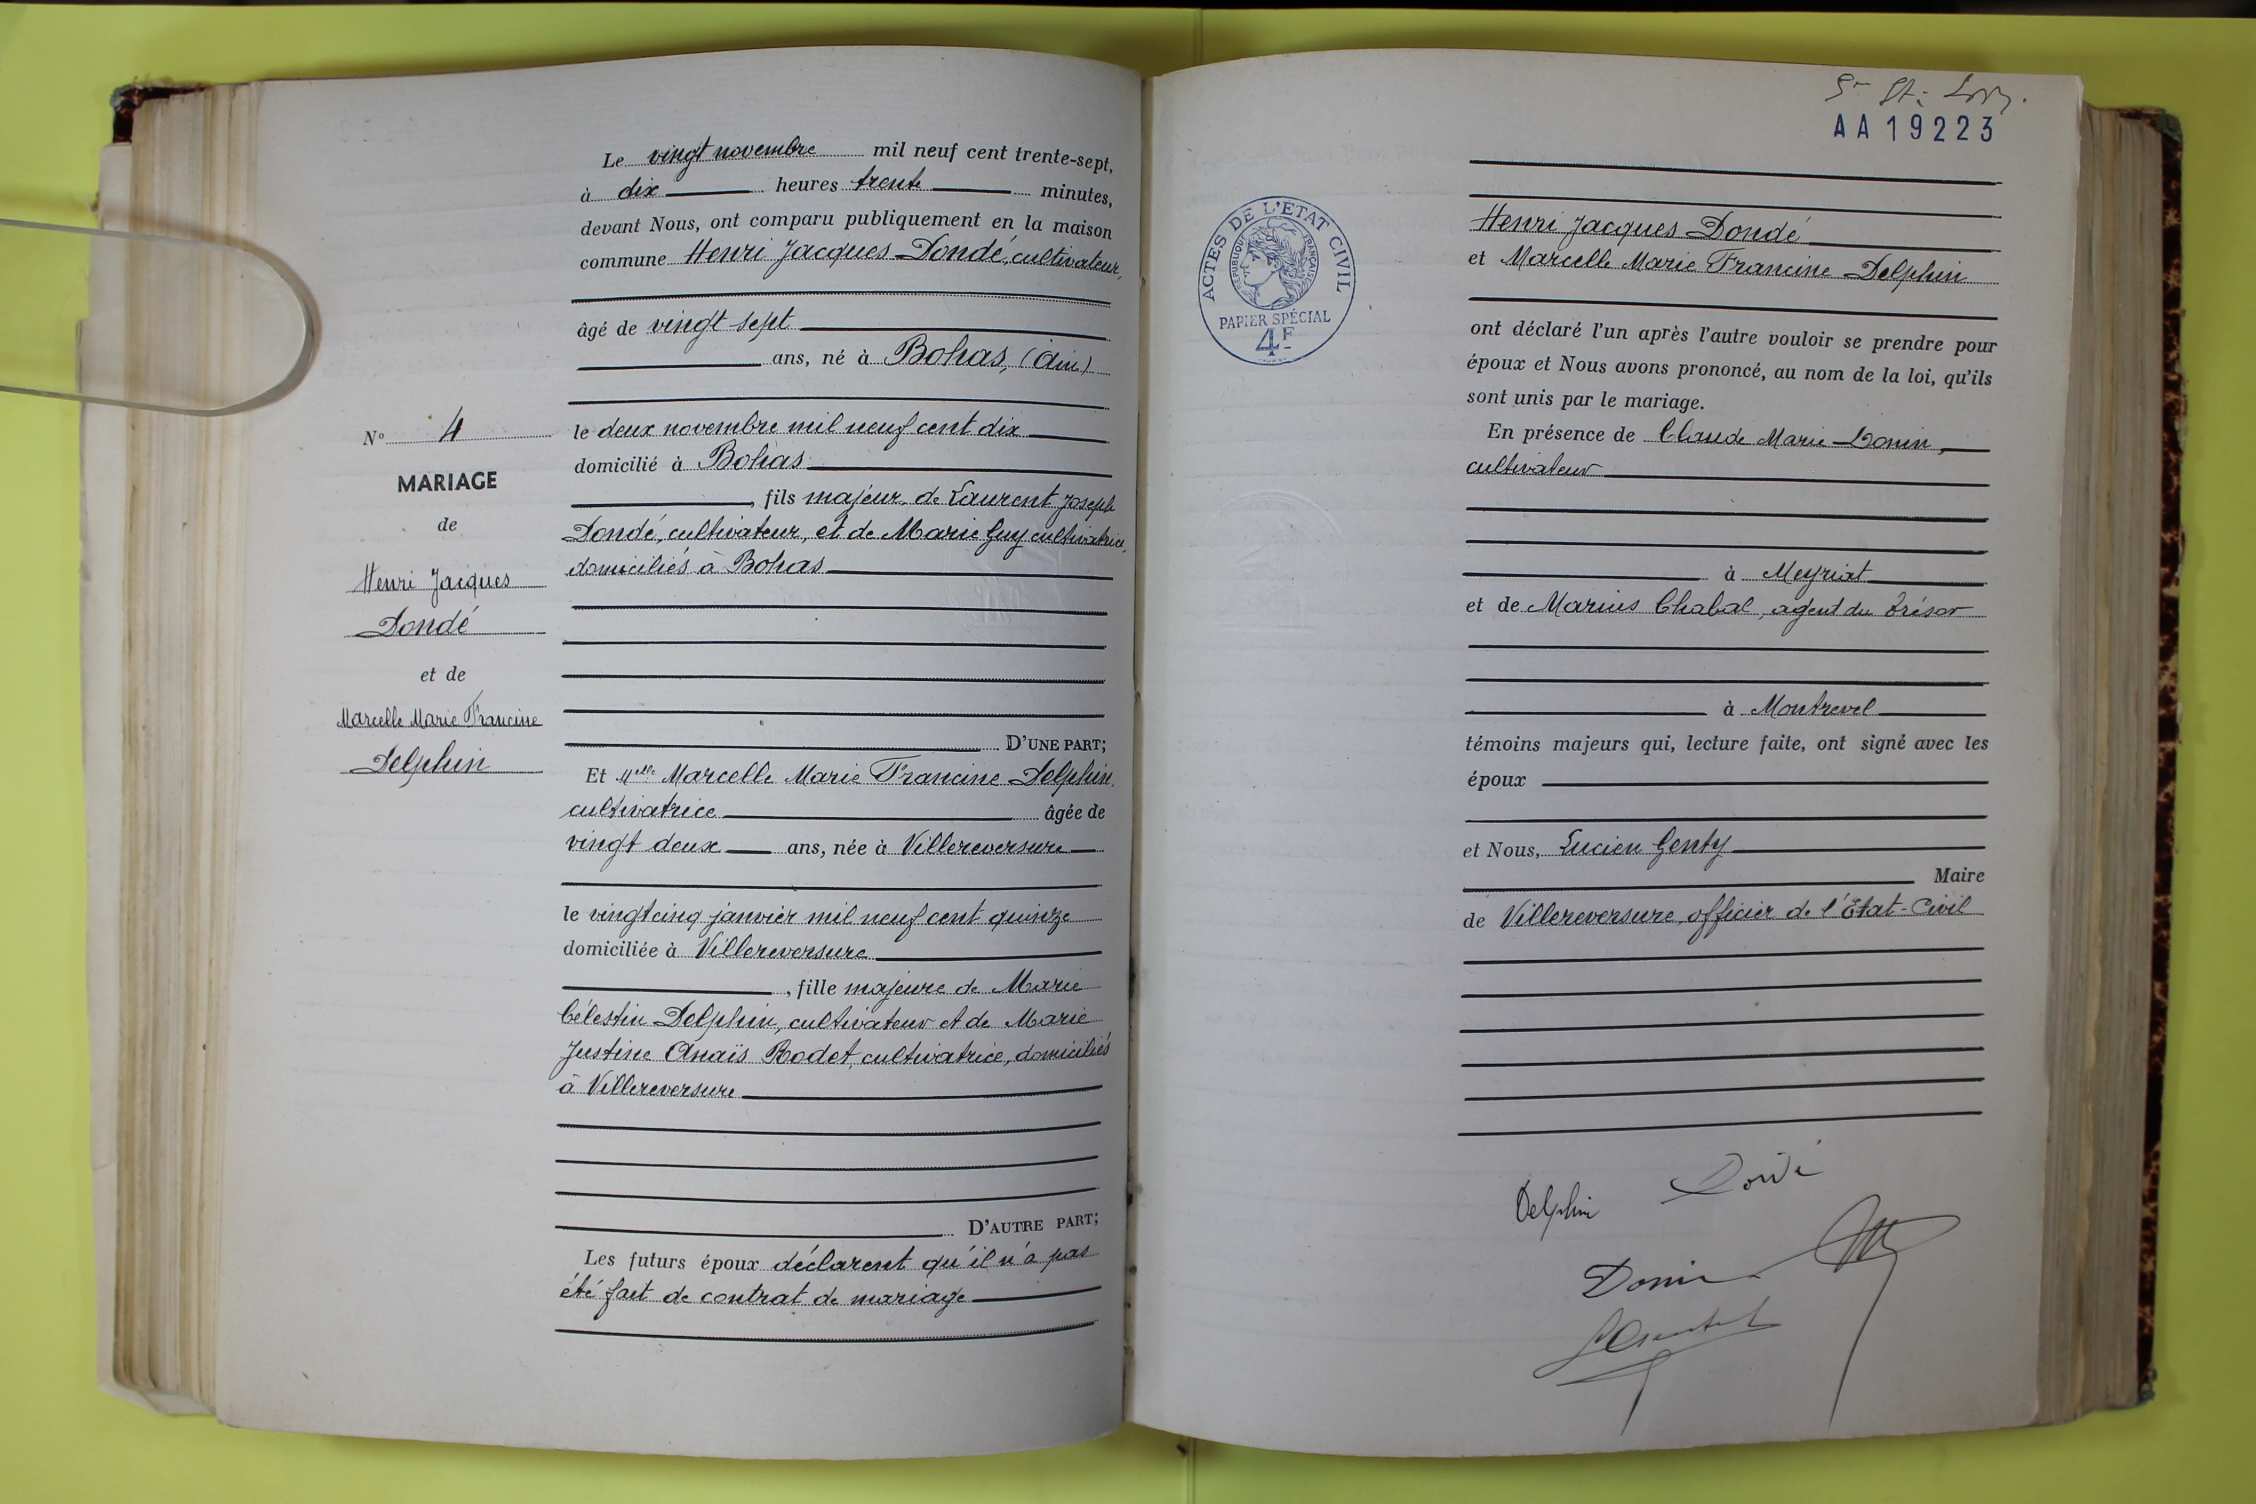 N° 4
MARIAGE
de
Henri Jacques
Dondé
et de
Marcelle Marie Francine
Delphin
Le vingt novembre mil neuf cent trente-sept,
à dix heures trente minutes,
devant Nous, ont comparu publiquement en la maison
commune Henri Jacques Dondé, cultivateur,
âgé de vingt sept
ans, né à Bohas, (Ain)
le deux novembre mil neuf cent dix
domicilié à Bohas
, fils majeur de Laurent Joseph
Dondé, cultivateur, et de Marie Guy cultivatrice,
domiciliés à Bohas
D'UNE PART;
Et Melle Marcelle Marie Francine Delphin,
cultivatrice âgée de
vingt deux ans, née à Villereversure
le vingt cinq janvier mil neuf cent quinze
domiciliée à Villereversure
, fille majeure de Marie
Célestin Delphin, cultivateur et de Marie
Justine Anaïs Rodet, cultivatrice, domiciliés
à Villereversure
D'AUTRE PART;
Les futurs époux déclarent qu'il n'a pas
été fait de contrat de mariage
AA19223
ACTES DE L'ETAT CIVIL
REPUBLIQUE FRANÇAISE
PAPIER SPÉCIAL
4F
Henri Jacques Dondé
et Marcelle Marie Francine Delphin
ont déclaré l'un après l'autre vouloir se prendre pour
époux et Nous avons prononcé, au nom de la loi, qu'ils
sont unis par le mariage.
En présence de Claude Marie Donin,
cultivateur
à Meyriat
et de Marius Chabal, agent du Trésor
à Montrevel
témoins majeurs qui, lecture faite, ont signé avec les
époux
et Nous, Lucien Genty
Maire
de Villereversure, officier de l'Etat-Civil
Delphin Dondé
Donin